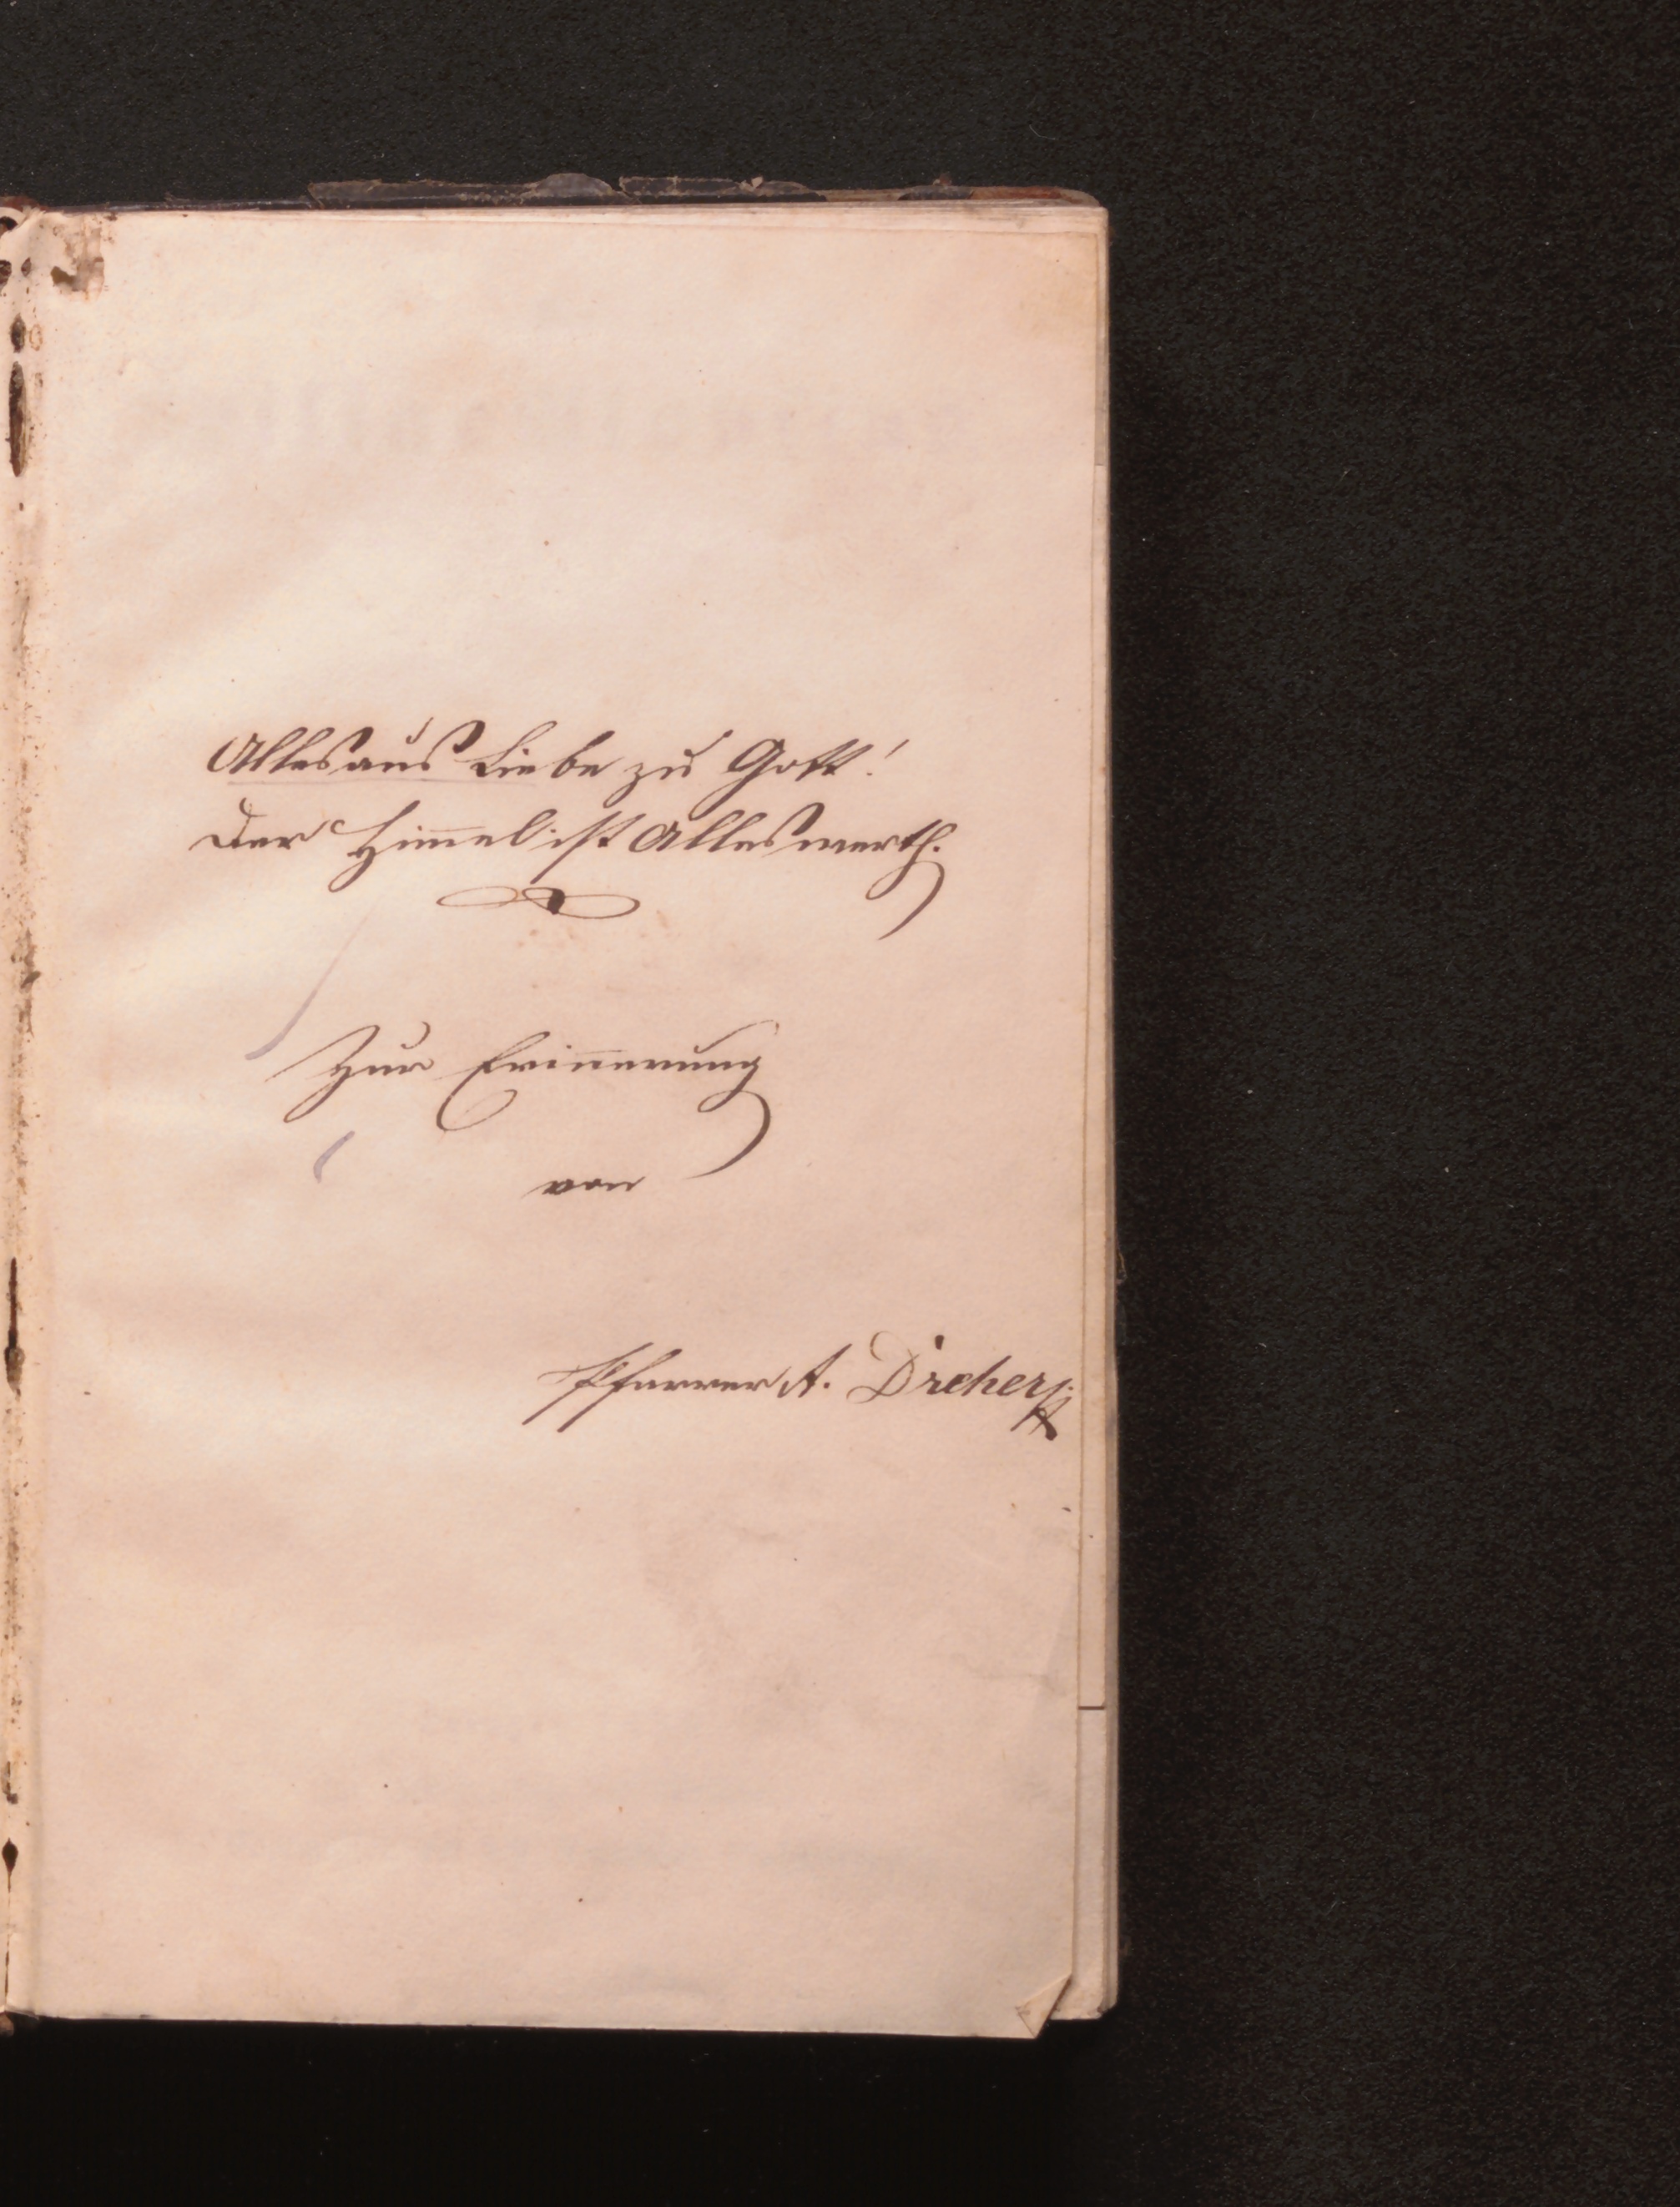 Alles aus Liebe zu Gott!
Der Him̅el ist Alles werth.
Zur Erin̅erung
von
Pfarrer A. Dreher